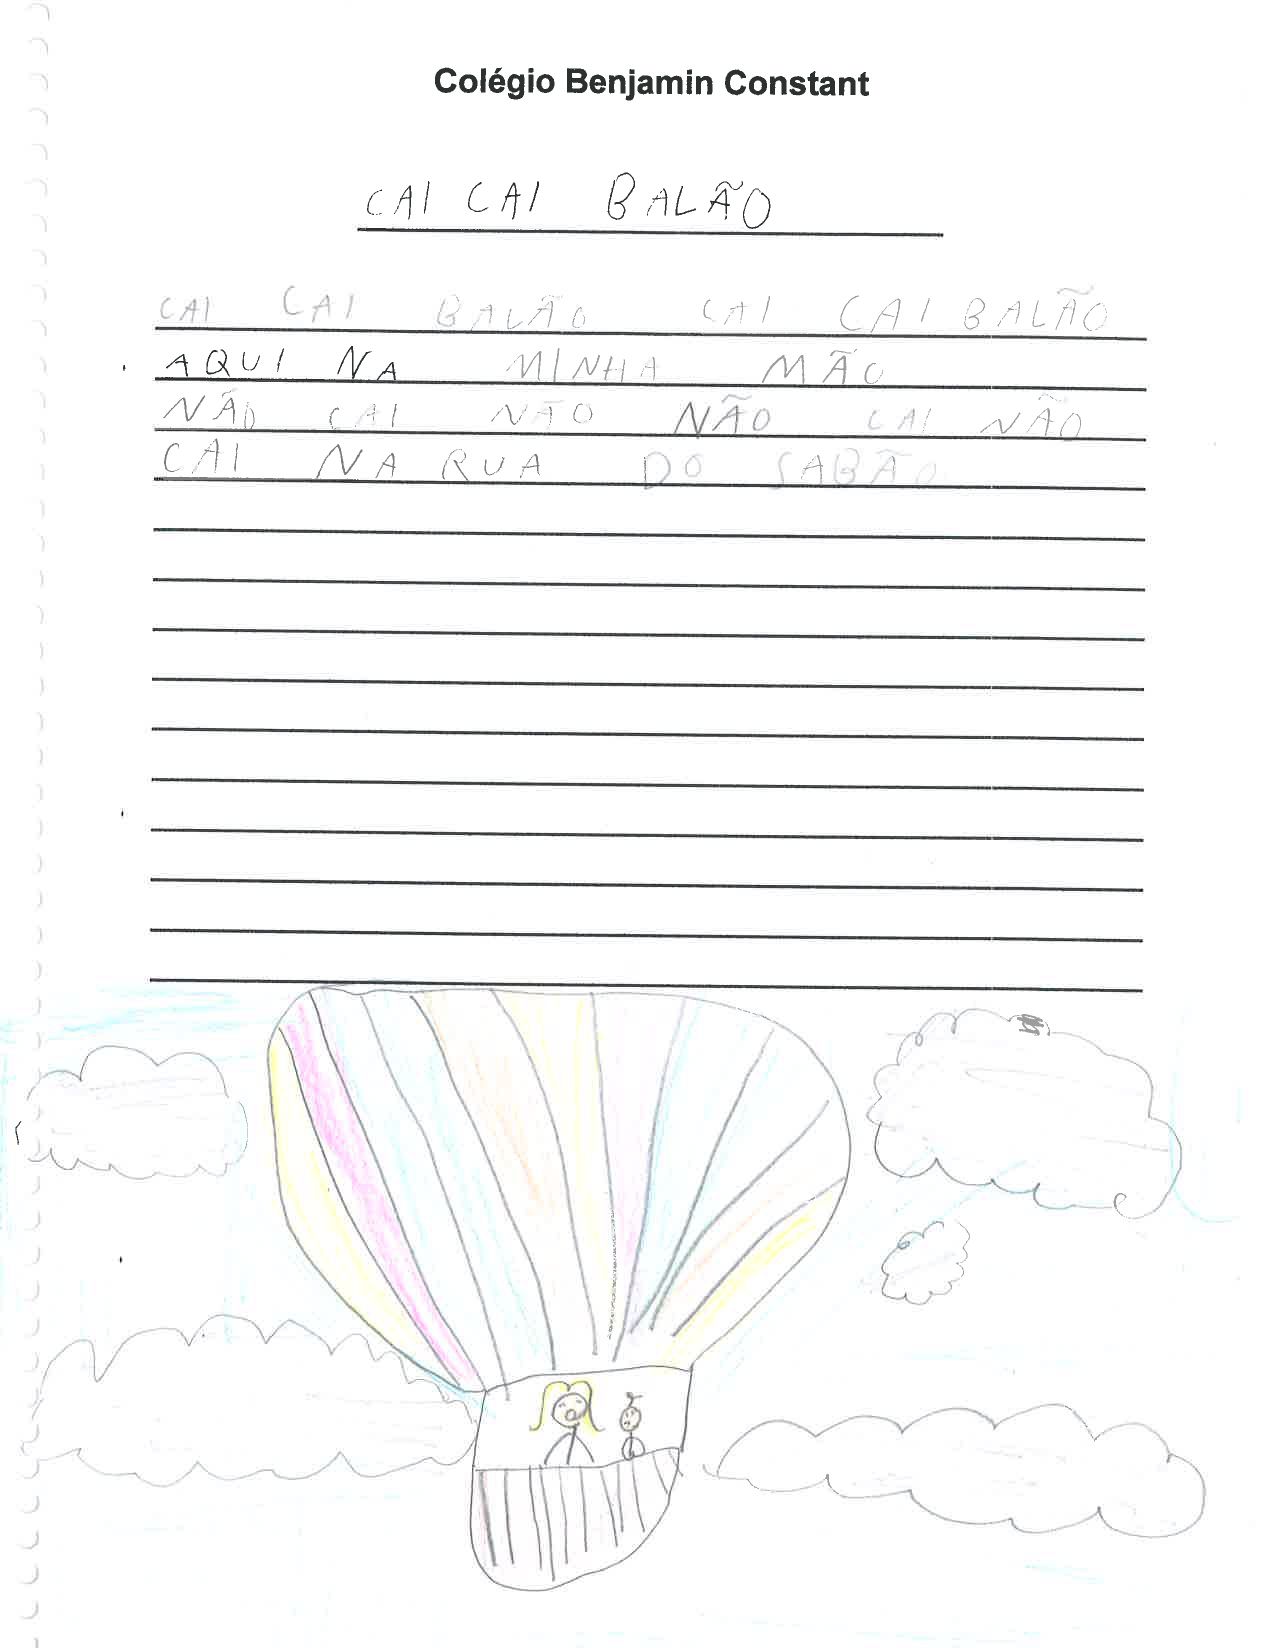 Colégio Benjamin Constant
CAI CAI BALÃO
CAI CAI BALÃO CAI CAI BALÃO
AQUI NA MINHA MÃO
NÃO CAI NÃO NÃO CAI NÃO
CAI NA RUA DO SABÃO